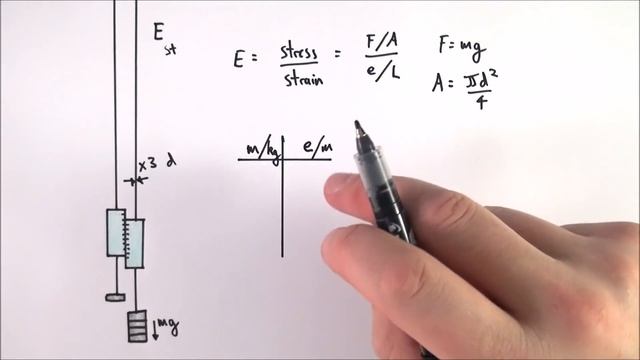 E st
E = stress / strain = F/A / e/L
F = mg
A = πd² / 4
m/kg e/m
x3 d
mg